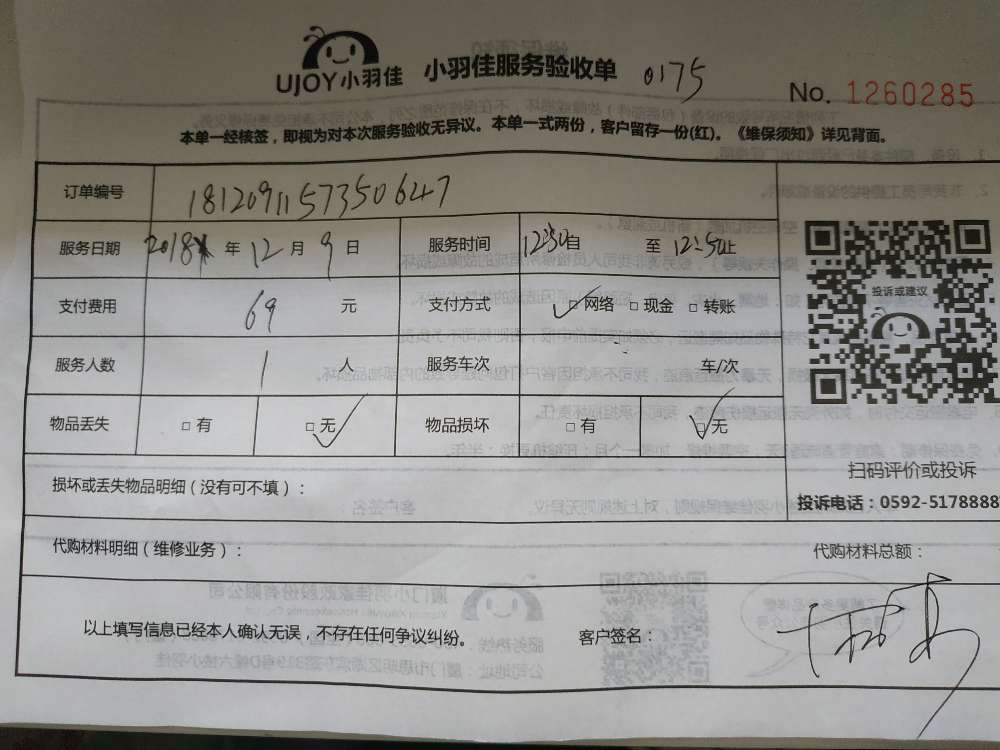 UJOY小羽佳 小羽佳服务验收单 0175
No. 1260285
本单一经核签，即视为对本次服务验收无异议。本单一式两份，客户留存一份(红)。《维保须知》详见背面。
订单编号 181209115735 0647
服务日期 2018 年 12 月 9 日 服务时间 12:30自 至 12:50止
支付费用 69 元 支付方式 □网络 □现金 □转账
服务人数 1 人 服务车次 车/次
物品丢失 □有 □无 物品损坏 □有 □无
投诉或建议
扫码评价或投诉
投诉电话：0592-5178888
损坏或丢失物品明细（没有可不填）：
代购材料明细（维修业务）： 代购材料总额：
以上填写信息已经本人确认无误，不存在任何争议纠纷。 客户签名：